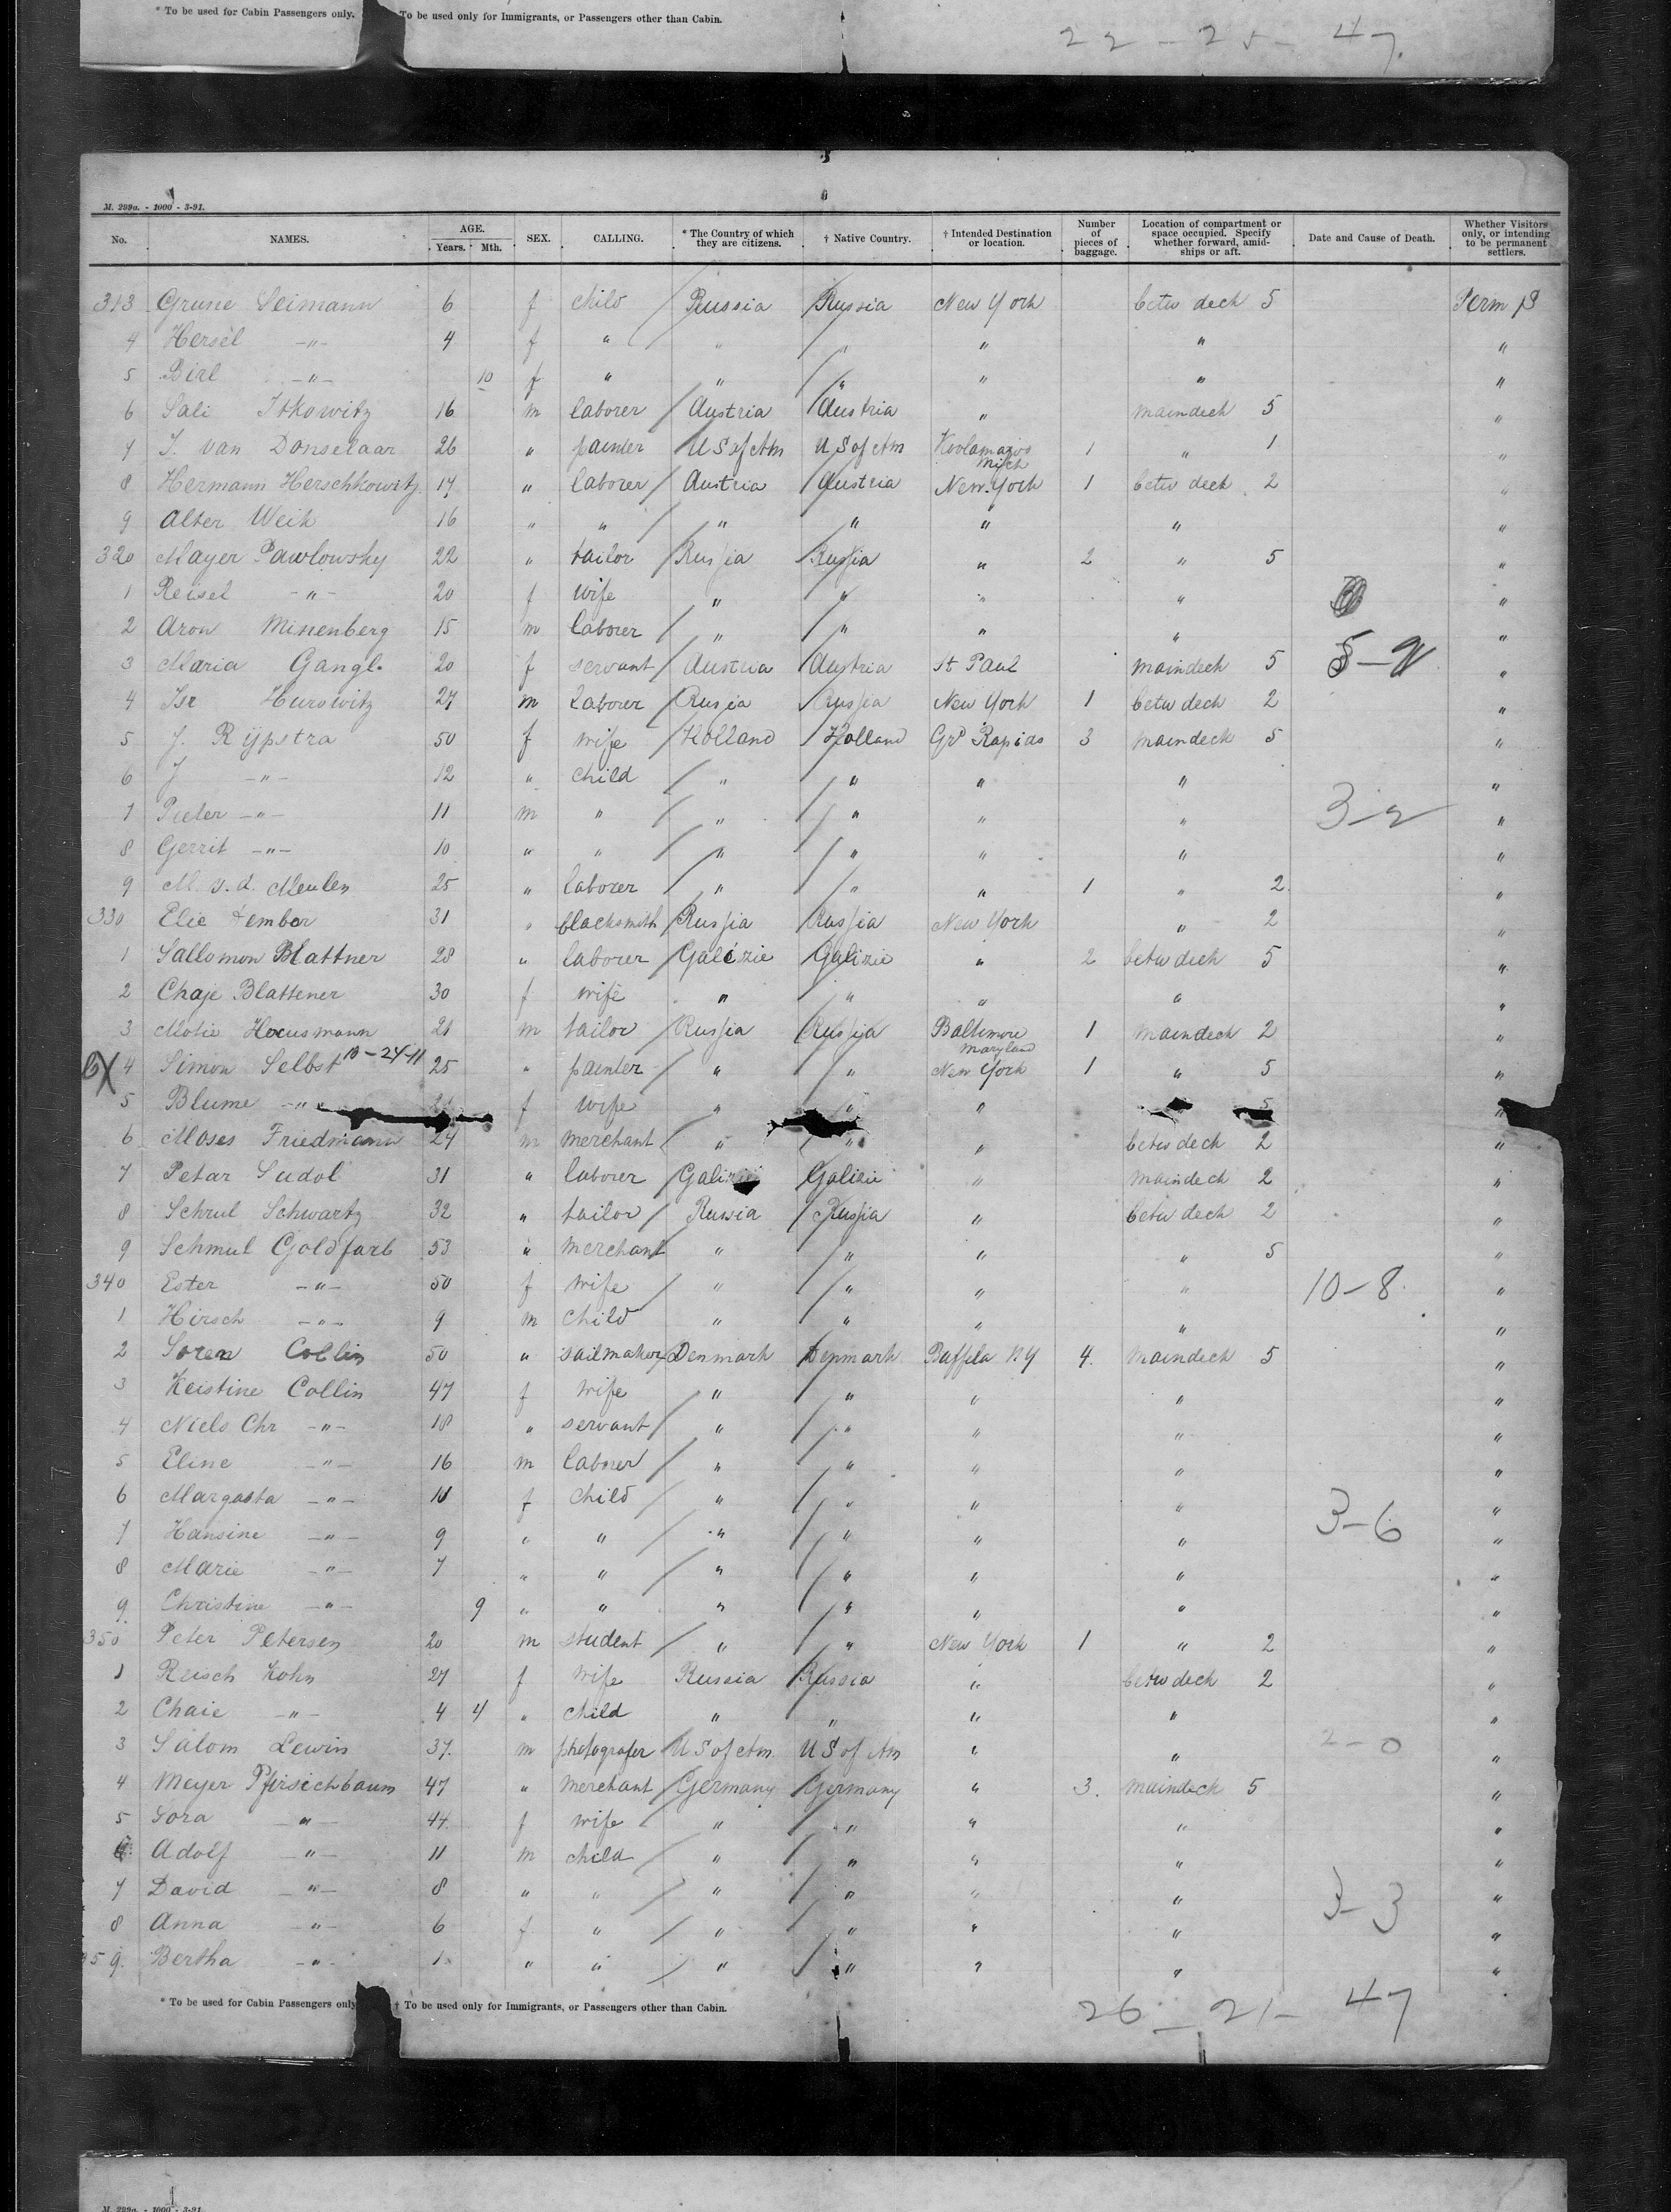 * To be used for Cabin Passengers only. To be used only for Immigrants, or Passengers other than Cabin.
22 - 25 - 47.
M. 299a. - 1000 - 3-91.
No. NAMES. AGE. Years. Mth. SEX. CALLING. * The Country of which they are citizens. † Native Country. † Intended Destination or location. Number of pieces of baggage. Location of compartment or space occupied. Specify whether forward, amidships or aft. Date and Cause of Death. Whether Visitors only, or intending to be permanent settlers.
313 Grune Seimann 6 f child Russia Russia New York betw deck 5 Perm S
4 Hersel -"- 4 f " " " " " "
5 Birl -"- 10 f " " " " " "
6 Sali Itkowitz 16 m laborer Austria Austria " maindeck 5 "
7 J. van Donselaar 26 " painter U S of Am U S of Am Koolamazoo Mich 1 " 1 "
8 Hermann Herschkowitz 17 " laborer Austria Austria New York 1 betw deck 2 "
9 Alter Weih 16 " " " " " " "
320 Mayer Pawlowsky 22 " tailor Russia Russia " 2 " 5 "
1 Reisel -"- 20 f wife " " " " "
2 Aron Misenberg 15 m laborer " " " " "
3 Maria Gangl. 20 f servant Austria Austria St Paul maindeck 5 "
4 Isr Hurowitz 27 m laborer Russia Russia New York 1 betw deck 2 "
5 J. Rijpstra 50 f wife Holland Holland Grd Rapids 3 maindeck 5 "
6 J -"- 12 " child " " " " "
7 Pieter -"- 11 m " " " " " 3-2 "
8 Gerrit -"- 10 " " " " " " "
9 M. v. d. Meulen 25 " laborer " " " 1 " 2 "
330 Elie Fember 31 " blacksmith Russia Russia New York " 2 "
1 Sallomon Blattner 28 " laborer Galizie Galizie " 2 betw deck 5 "
2 Chaje Blattener 30 f wife " " " " "
3 Motie Hausmann 21 m tailor Russia Russia Baltimore Maryland 1 maindeck 2 "
X 4 Simon Selbst 10-24-11 25 " painter " " New York 1 " 5 "
5 Blume -"- f wife " " " 5 "
6 Moses Friedmann 24 m merchant " " " betw deck 2 "
7 Petar Sudol 31 " laborer Galizie Galizie " maindeck 2 "
8 Schrul Schwartz 32 " tailor Russia Russia " betw deck 2 "
9 Schmul Goldfarb 53 " merchant " " " " 5 "
340 Ester -"- 50 f wife " " " " 10-8. "
1 Hirsch -"- 9 m child " " " " "
2 Soren Collin 50 " sailmaker Denmark Denmark Buffelo NY 4. maindeck 5 "
3 Keistine Collin 47 f wife " " " " "
4 Niels Chr -"- 18 " servant " " " " "
5 Eline -"- 16 m laborer " " " " "
6 Margasta -"- 11 f child " " " " 3-6 "
7 Hansine -"- 9 " " " " " " "
8 Marie -"- 7 " " " " " " "
9. Christine -"- 9 " " " " " " "
350 Peter Petersen 20 m student " " New York 1 " 2 "
1 Reisch Kohn 27 f wife Russia Russia " betw deck 2 "
2 Chaie -"- 4 4 " child " " " " "
3 Salom Lewin 37. m photografer U S of Am. U S of Am " " 2-0 "
4 Meyer Pfirsichbaum 47 " merchant Germany Germany " 3. maindeck 5 "
5 Sora -"- 44. f wife " " " " "
6 Adolf -"- 11 m child " " " " "
7 David -"- 8 " " " " " " 3-3 "
8 Anna -"- 6 f " " " " " "
359. Bertha -"- 1 " " " " " " "
* To be used for Cabin Passengers only † To be used only for Immigrants, or Passengers other than Cabin.
26 - 21 - 47
M. 299a. - 1000 - 3-91.